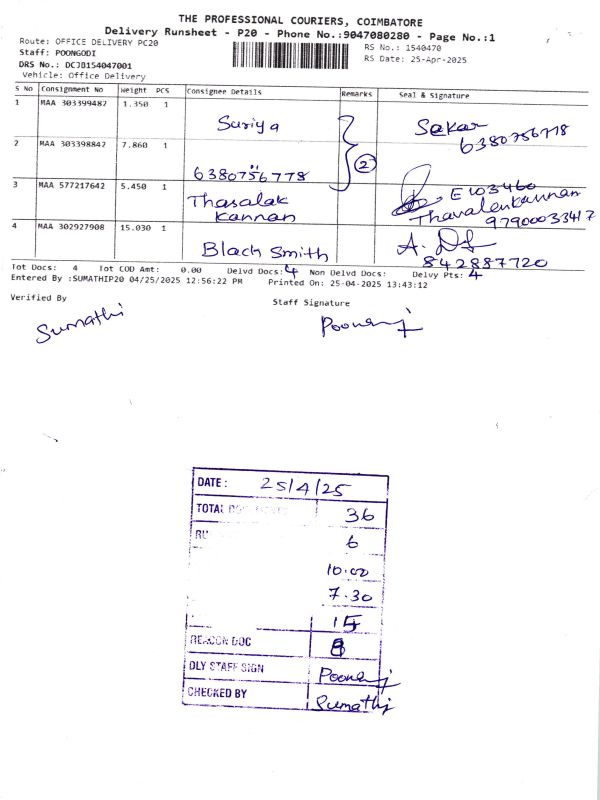 THE PROFESSIONAL COURIERS, COIMBATORE
Delivery Runsheet - P20 - Phone No.:9047080280 - Page No.:1
Route: OFFICE DELIVERY PC20
RS No.: 1540470
Staff: POONGODI
RS Date: 25-Apr-2025
DRS No.: DCJB154047001
Vehicle: Office Delivery
S No Consignment No Weight PCS Consignee Details Remarks Seal & Signature
1 MAA 303399487 1.350 1 Suriya Sekar
6380756778
2 MAA 303398847 7.860 1 2
6380756778
3 MAA 577217642 5.450 1 Thasalak
Kannan
E103460
Thavalenkannan
97900033417
4 MAA 302927908 15.030 1 Black Smith
842887720
Tot Docs: 4 Tot COD Amt: 0.00 Delvd Docs: 4 Non Delvd Docs: Delvy Pts: 4
Entered By :SUMATHIP20 04/25/2025 12:56:22 PM Printed On: 25-04-2025 13:43:12
Verified By Staff Signature
Sumathi
DATE : 25/4/25
TOTAL 36
RU 6
10.00
7.30
15
DOC 8
DLY STAFF SIGN
CHECKED BY Sumathi